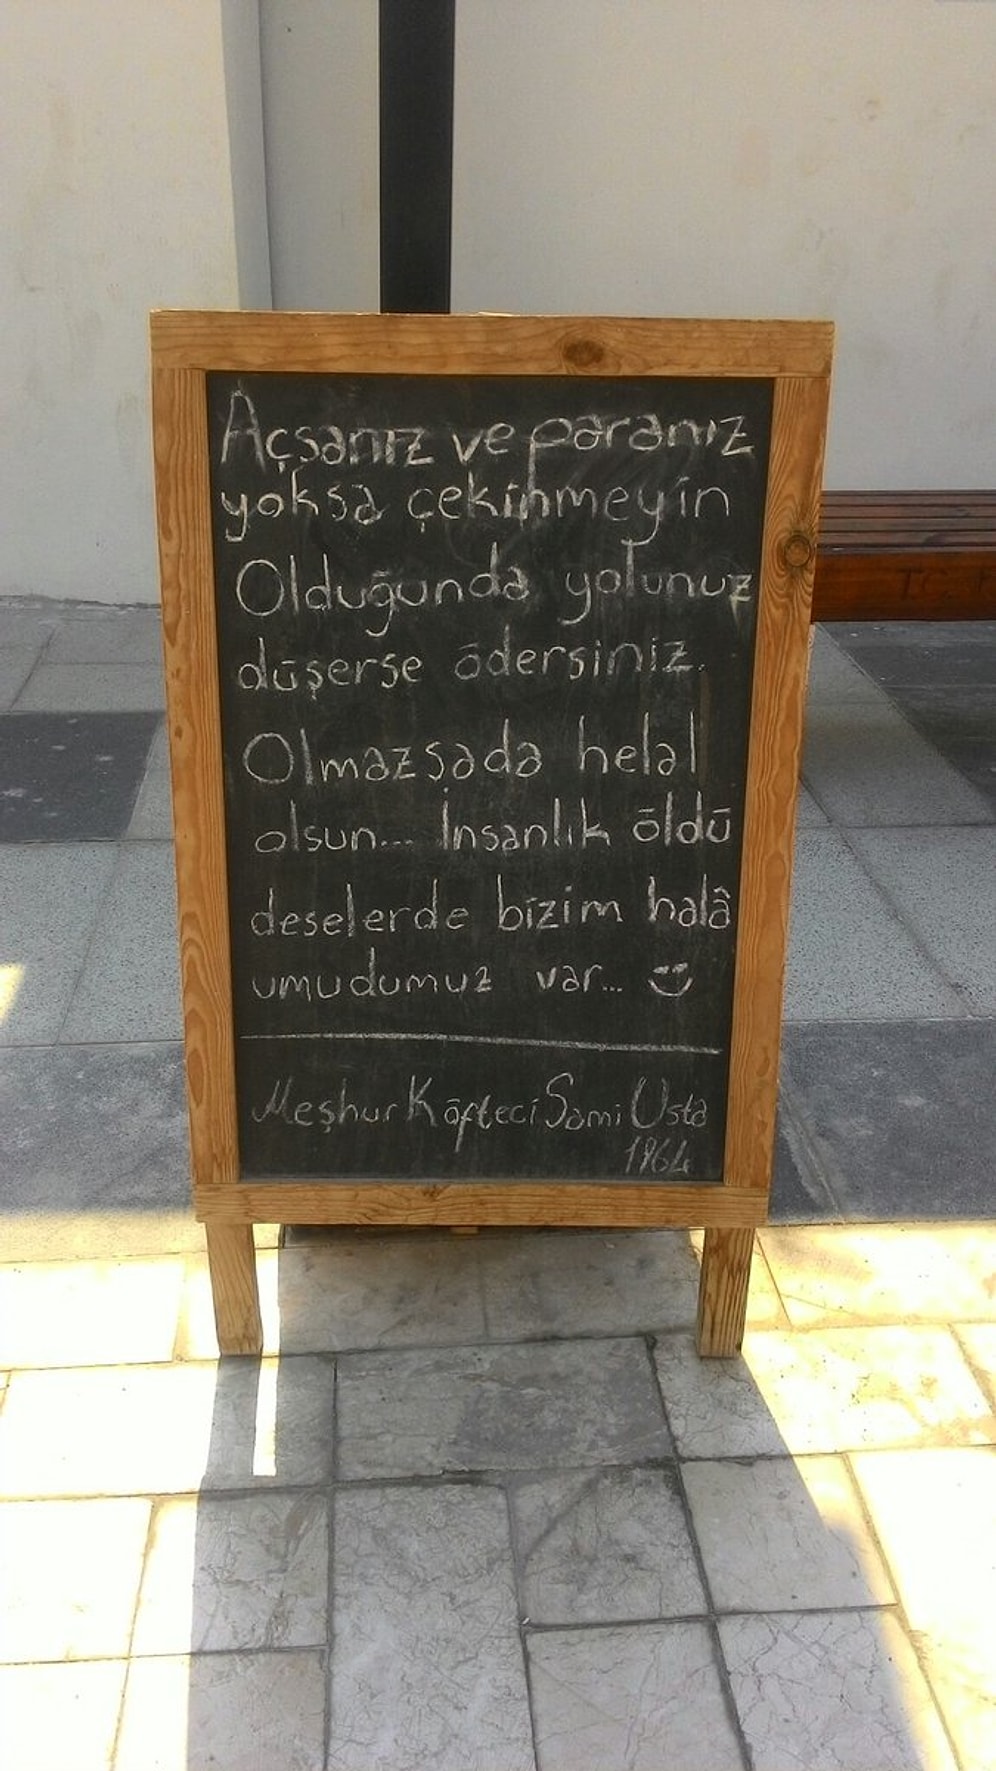 Açsanız ve paranız
yoksa çekinmeyin
Olduğunda yolunuz
düşerse ödersiniz.
Olmazsada helal
olsun... İnsanlık öldü
deselerde bizim halâ
umudumuz var...
Meşhur Köfteci Sami Usta
1964